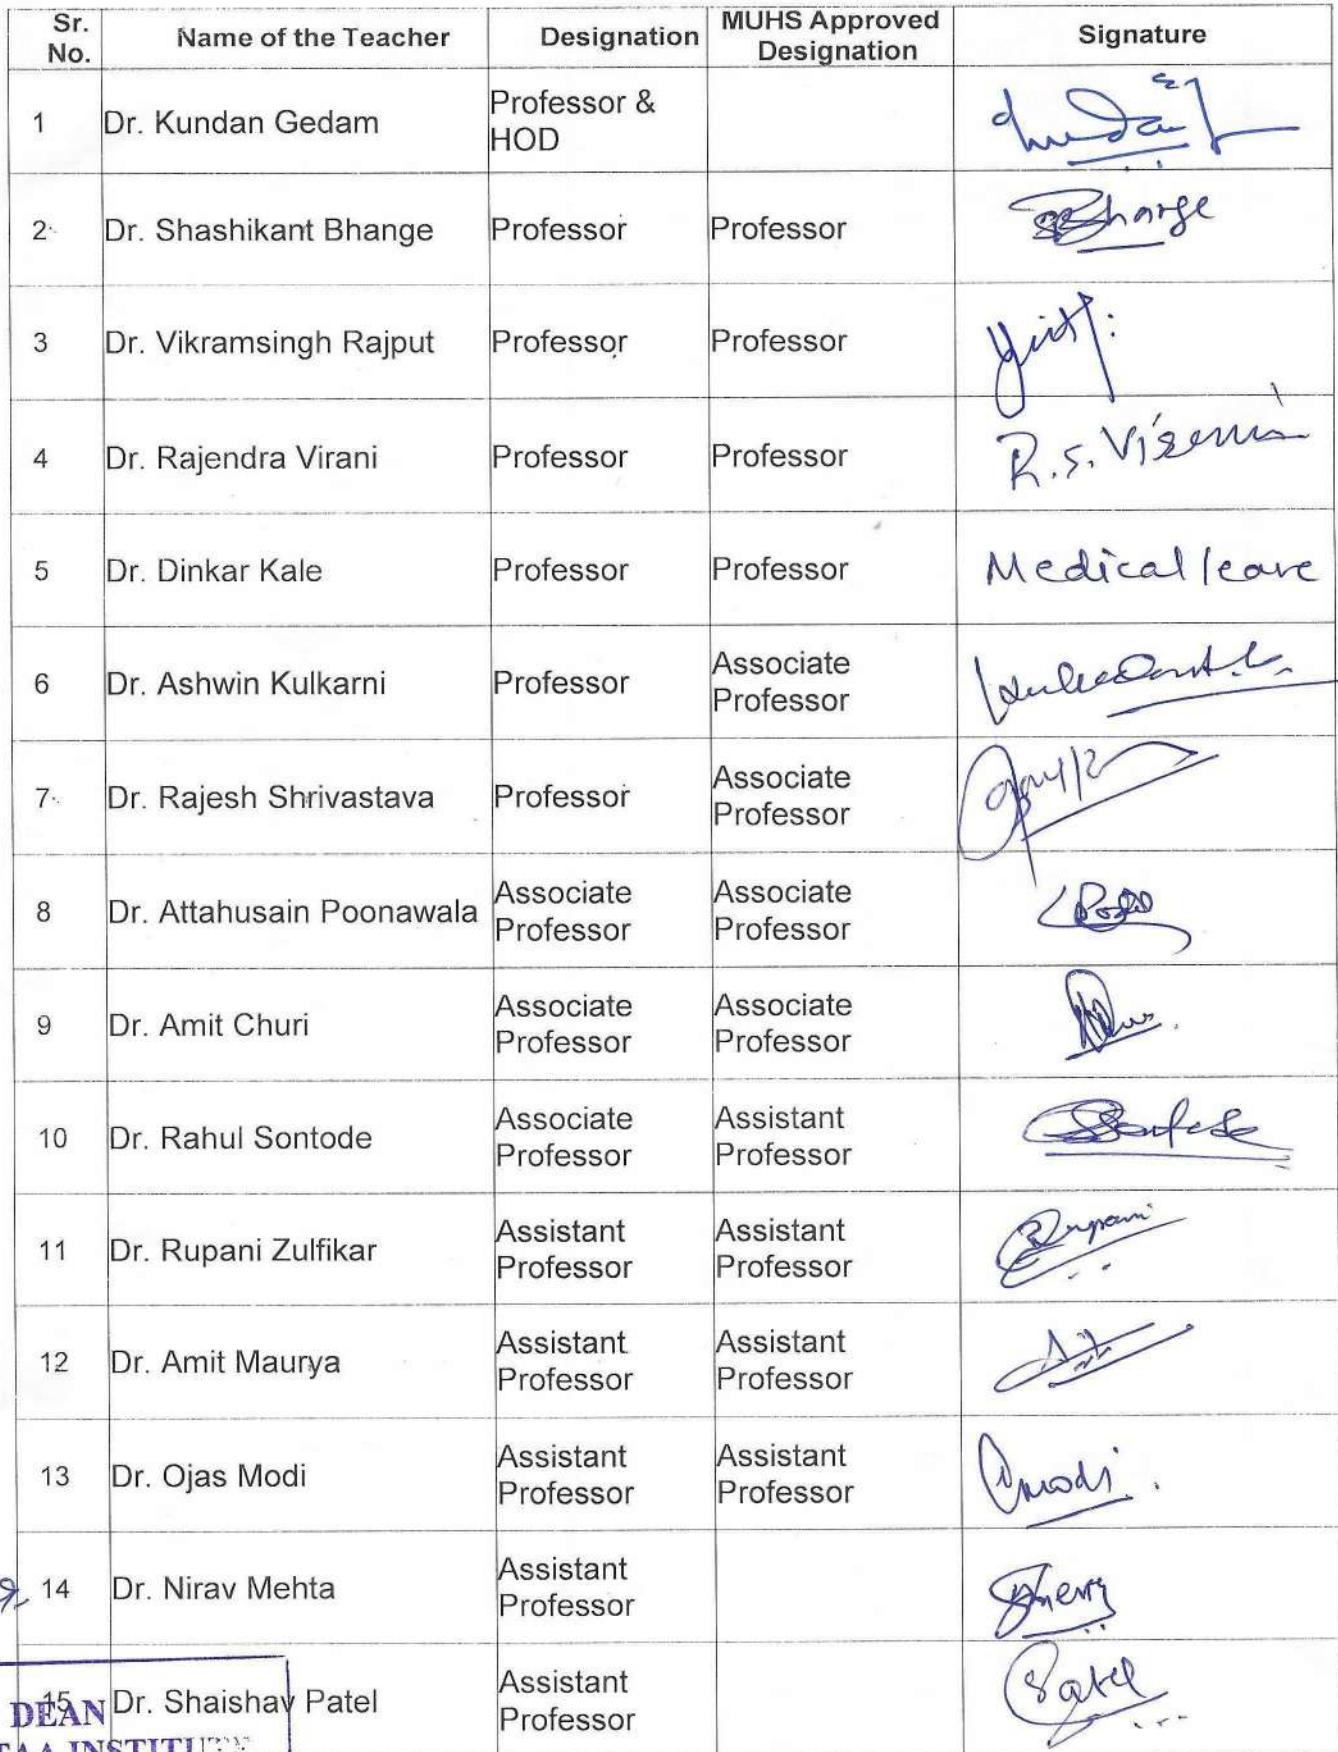 Sr. No. Name of the Teacher Designation MUHS Approved Designation Signature
1 Dr. Kundan Gedam Professor & HOD
2 Dr. Shashikant Bhange Professor Professor Bhange
3 Dr. Vikramsingh Rajput Professor Professor
4 Dr. Rajendra Virani Professor Professor R.S.
5 Dr. Dinkar Kale Professor Professor Medical leave
6 Dr. Ashwin Kulkarni Professor Associate Professor
7 Dr. Rajesh Shrivastava Professor Associate Professor
8 Dr. Attahusain Poonawala Associate Professor Associate Professor
9 Dr. Amit Churi Associate Professor Associate Professor
10 Dr. Rahul Sontode Associate Professor Assistant Professor
11 Dr. Rupani Zulfikar Assistant Professor Assistant Professor Rupani
12 Dr. Amit Maurya Assistant Professor Assistant Professor
13 Dr. Ojas Modi Assistant Professor Assistant Professor Omodi
14 Dr. Nirav Mehta Assistant Professor
15 Dr. Shaishav Patel Assistant Professor SPatel
DEAN
INSTITUTE